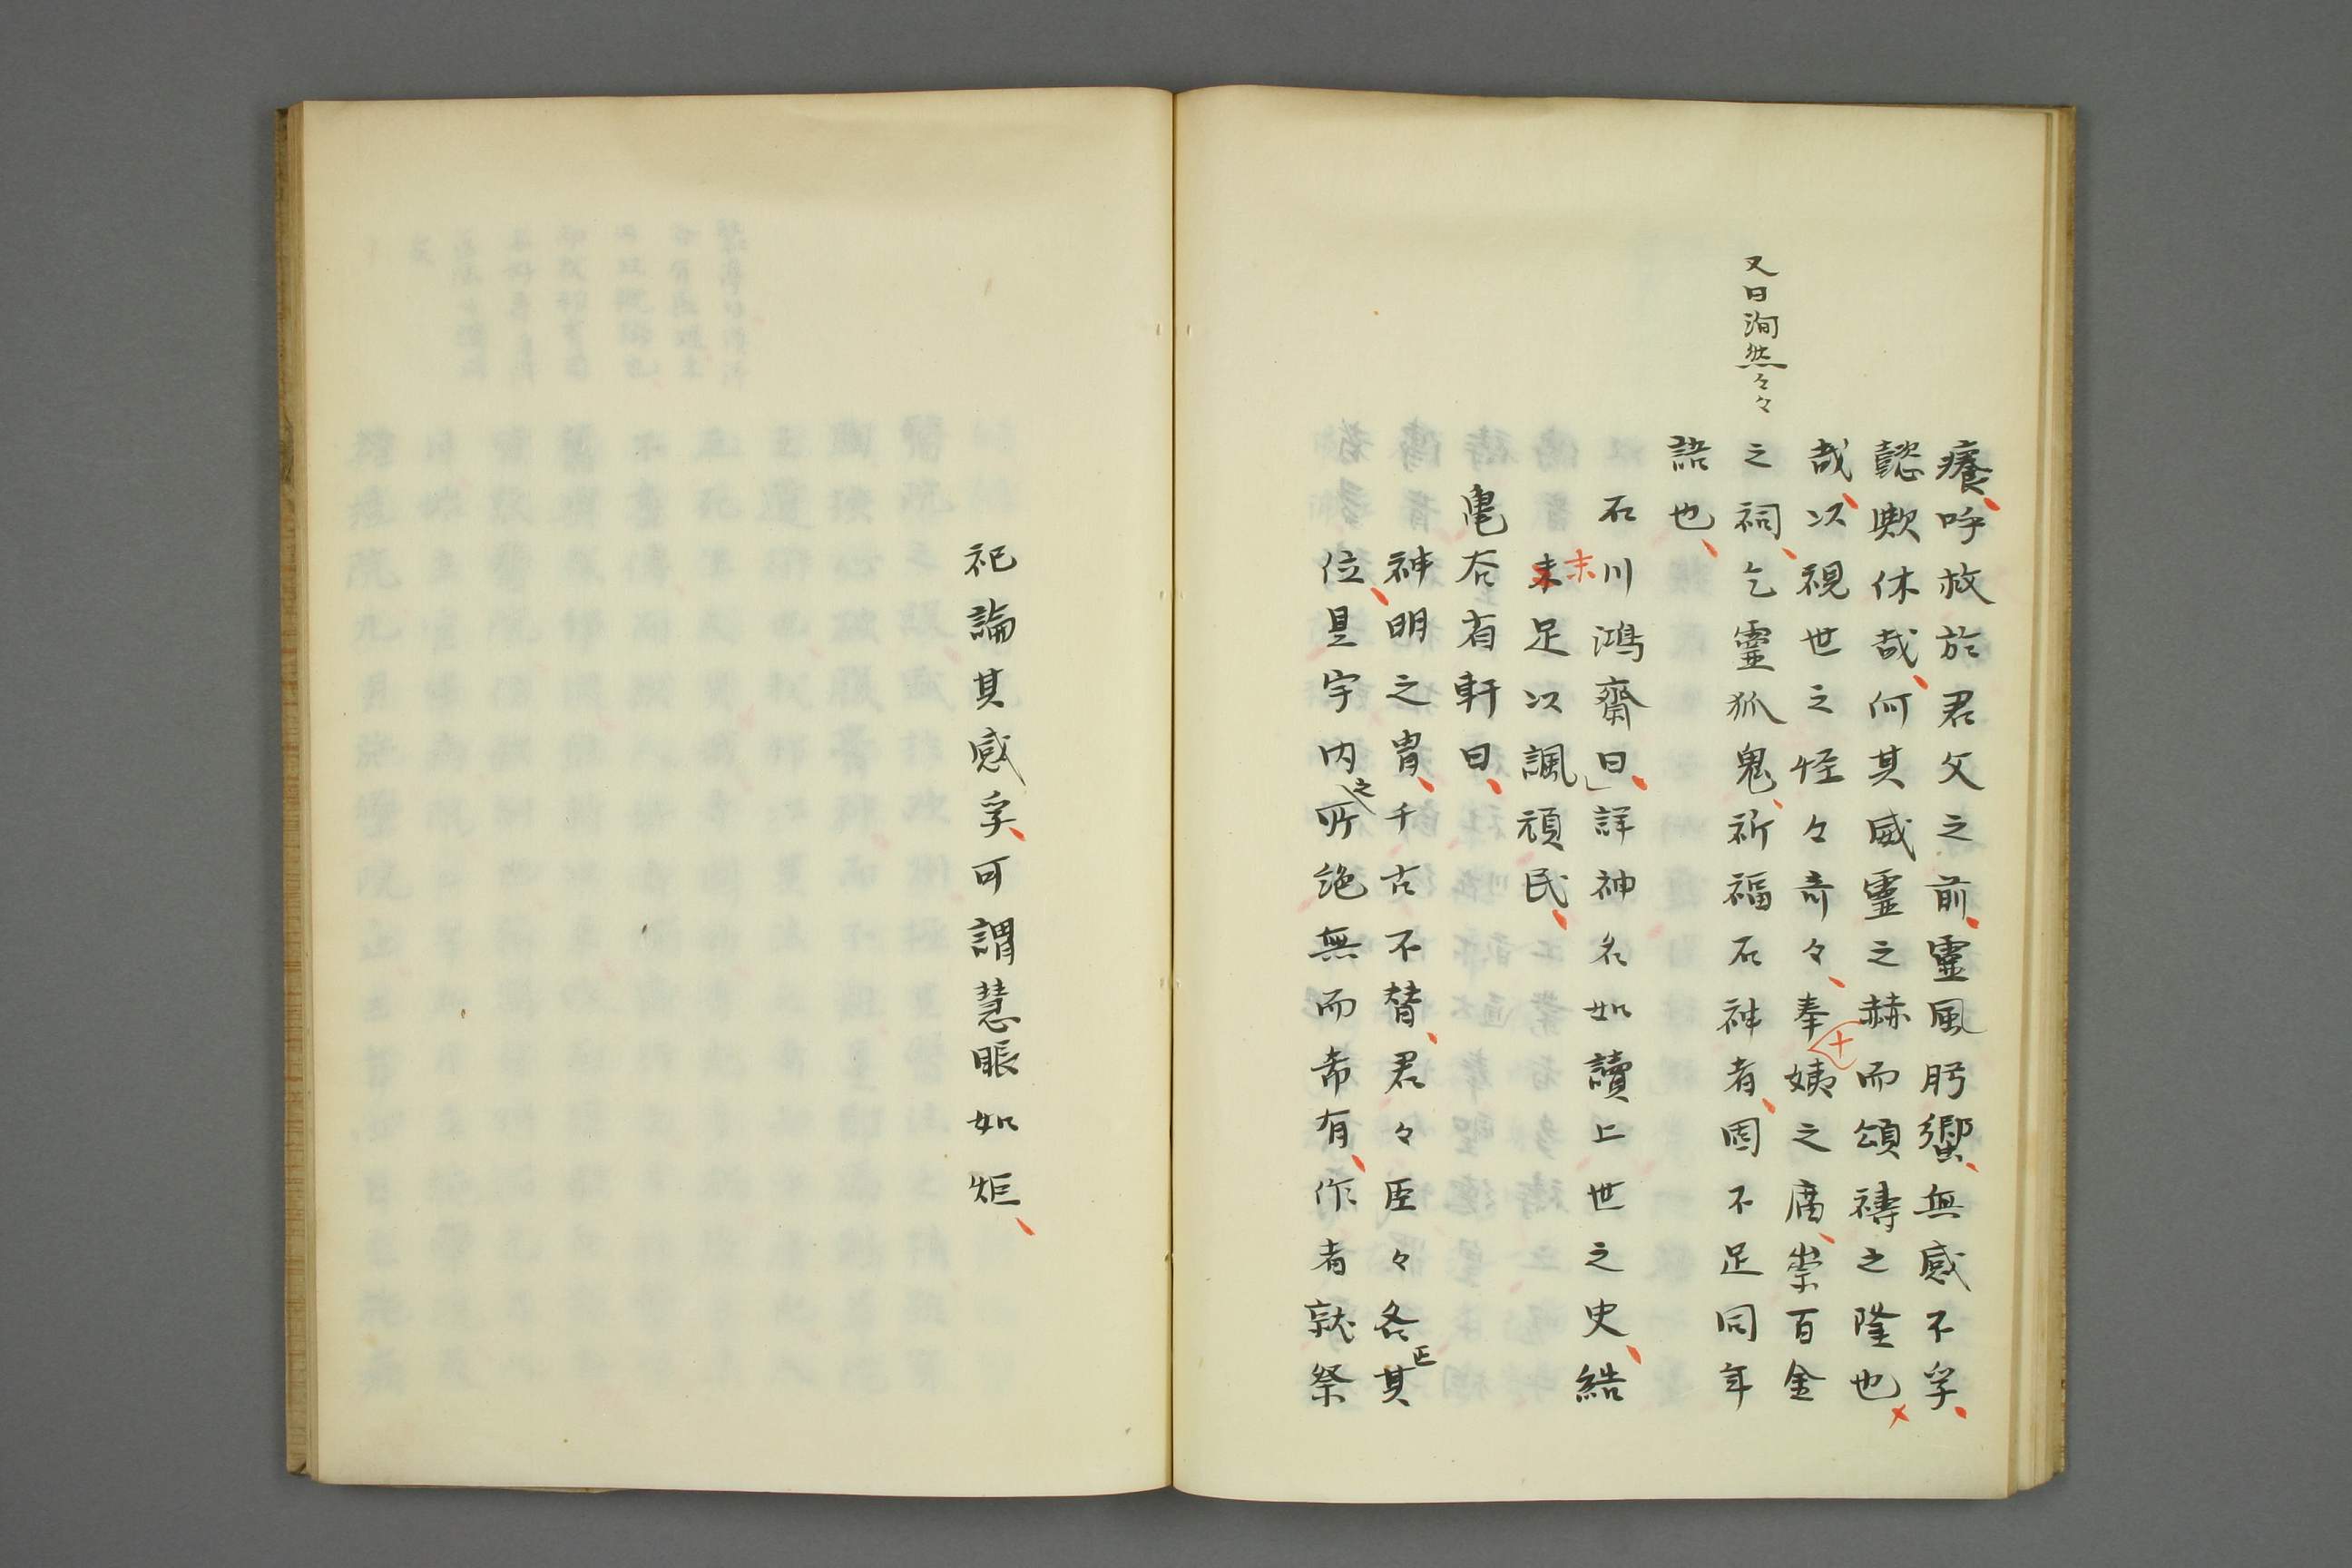 癢呼救於君父之前靈風肹蠁無感不孚
懿歟休哉何其威靈之赫而頌禱之隆也
哉以視世之怪々奇々奉姨之廟崇百金
又曰洵然々々
之祠乞靈狐鬼祈福石神者固不足同年
語也
石川鴻齋曰詳神名如讀上世之史結
末足以諷頑民
末
亀谷省軒曰
神明之冑千古不替君々臣々各正其
位是宇内之所絶無而希有作者就祭
祀論其感孚可謂慧眼如炬